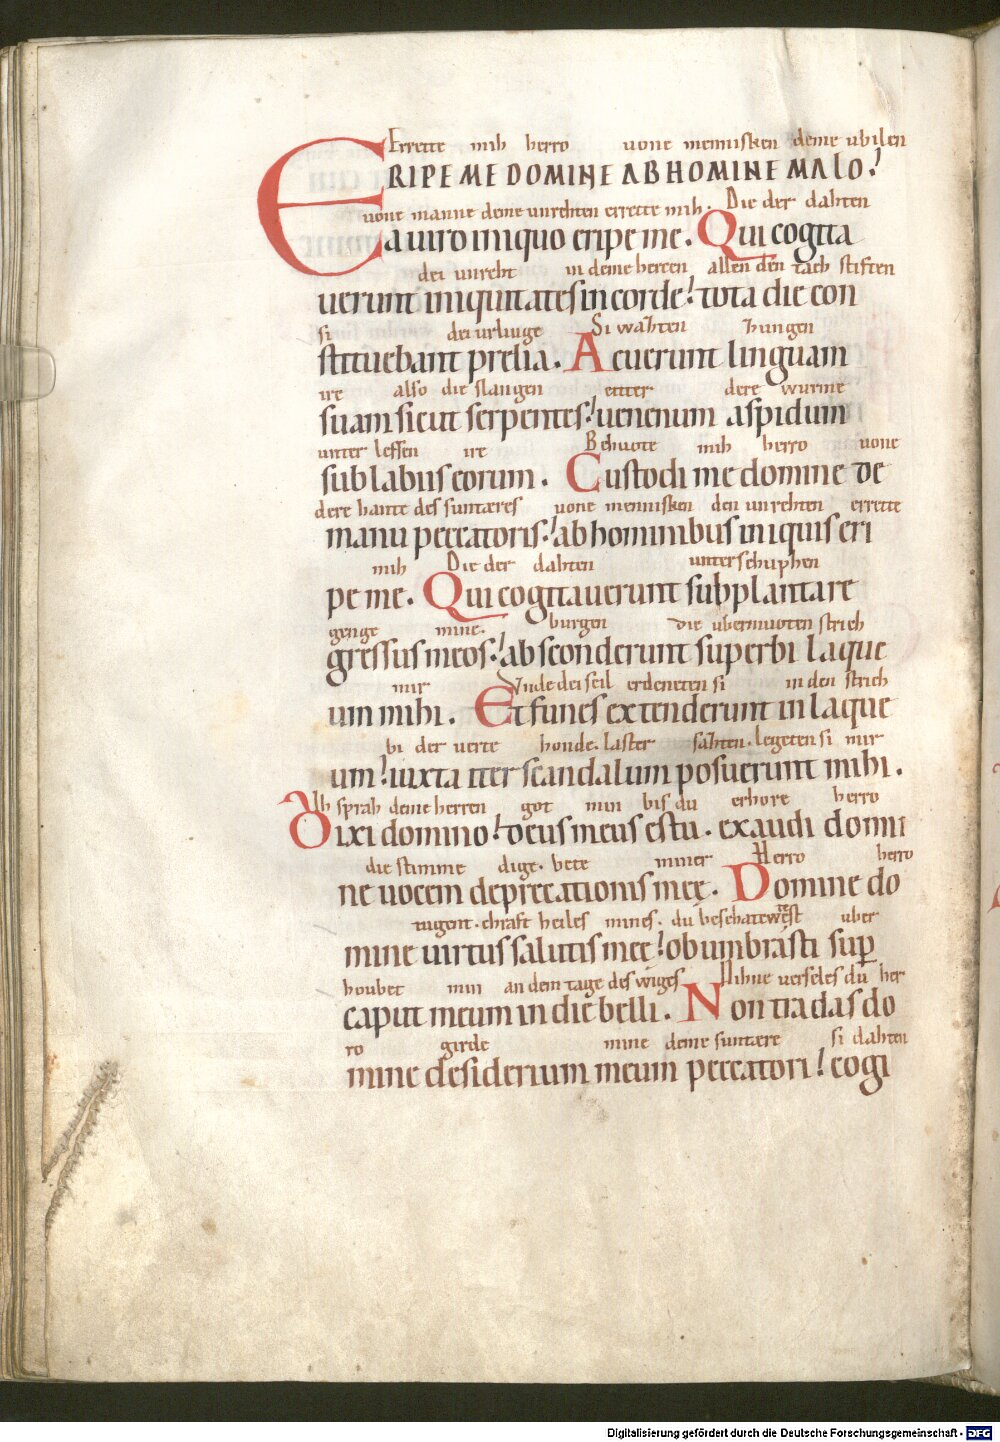 Errette mih herro uone mennisken deme ubilen
ERIPE ME DOMINE AB HOMINE MALO
uone manne deme unrehten errette mih. Die der dahten
a uiro iniquo eripe me. Qui cogita
dei unreht in deme hercen allen den tach stiften
uerunt iniquitates in corde tota die con
si dei urliuge Si wahten zungen
stituebant prelia. Acuerunt linguam
ire also die slangen eitter dere wurme
suam sicut serpentes uenenum aspidum
unter leffen ire Behuote mih herro uone
sub labiis eorum. Custodi me domine de
dere hante des suntæres uone mennisken den unrehten errette
manu peccatoris ab hominibus iniquis eri
mih Die der dahten unterschuphen
pe me. Qui cogitauerunt supplantare
genge mine. burgen die ubermuoten strich
gressus meos absconderunt superbi laque
mir Unde dei seil erdeneten si in den strich
um mihi. Et funes extenderunt in laque
bi der uerte honde. laster sazten. legeten si mir
um iuxta iter scandalum posuerunt mihi.
Ih sprah deme herren got min bis du erhore herro
Dixi domino deus meus es tu. exaudi domi
die stimme dige. bete miner Herro herro
ne uocem deprecationis meę. Domine do
tugent. chraft heiles mines. du beschatewæst uber
mine uirtus salutis meę obumbrasti sup
houbet min an dem tage des wiges Nihne verseles du her
caput meum in die belli. Non tradas do
ro girde mine deme suntære si dahten
mine desiderium meum peccatori cogi
Digitalisierung gefördert durch die Deutsche Forschungsgemeinschaft - DFG